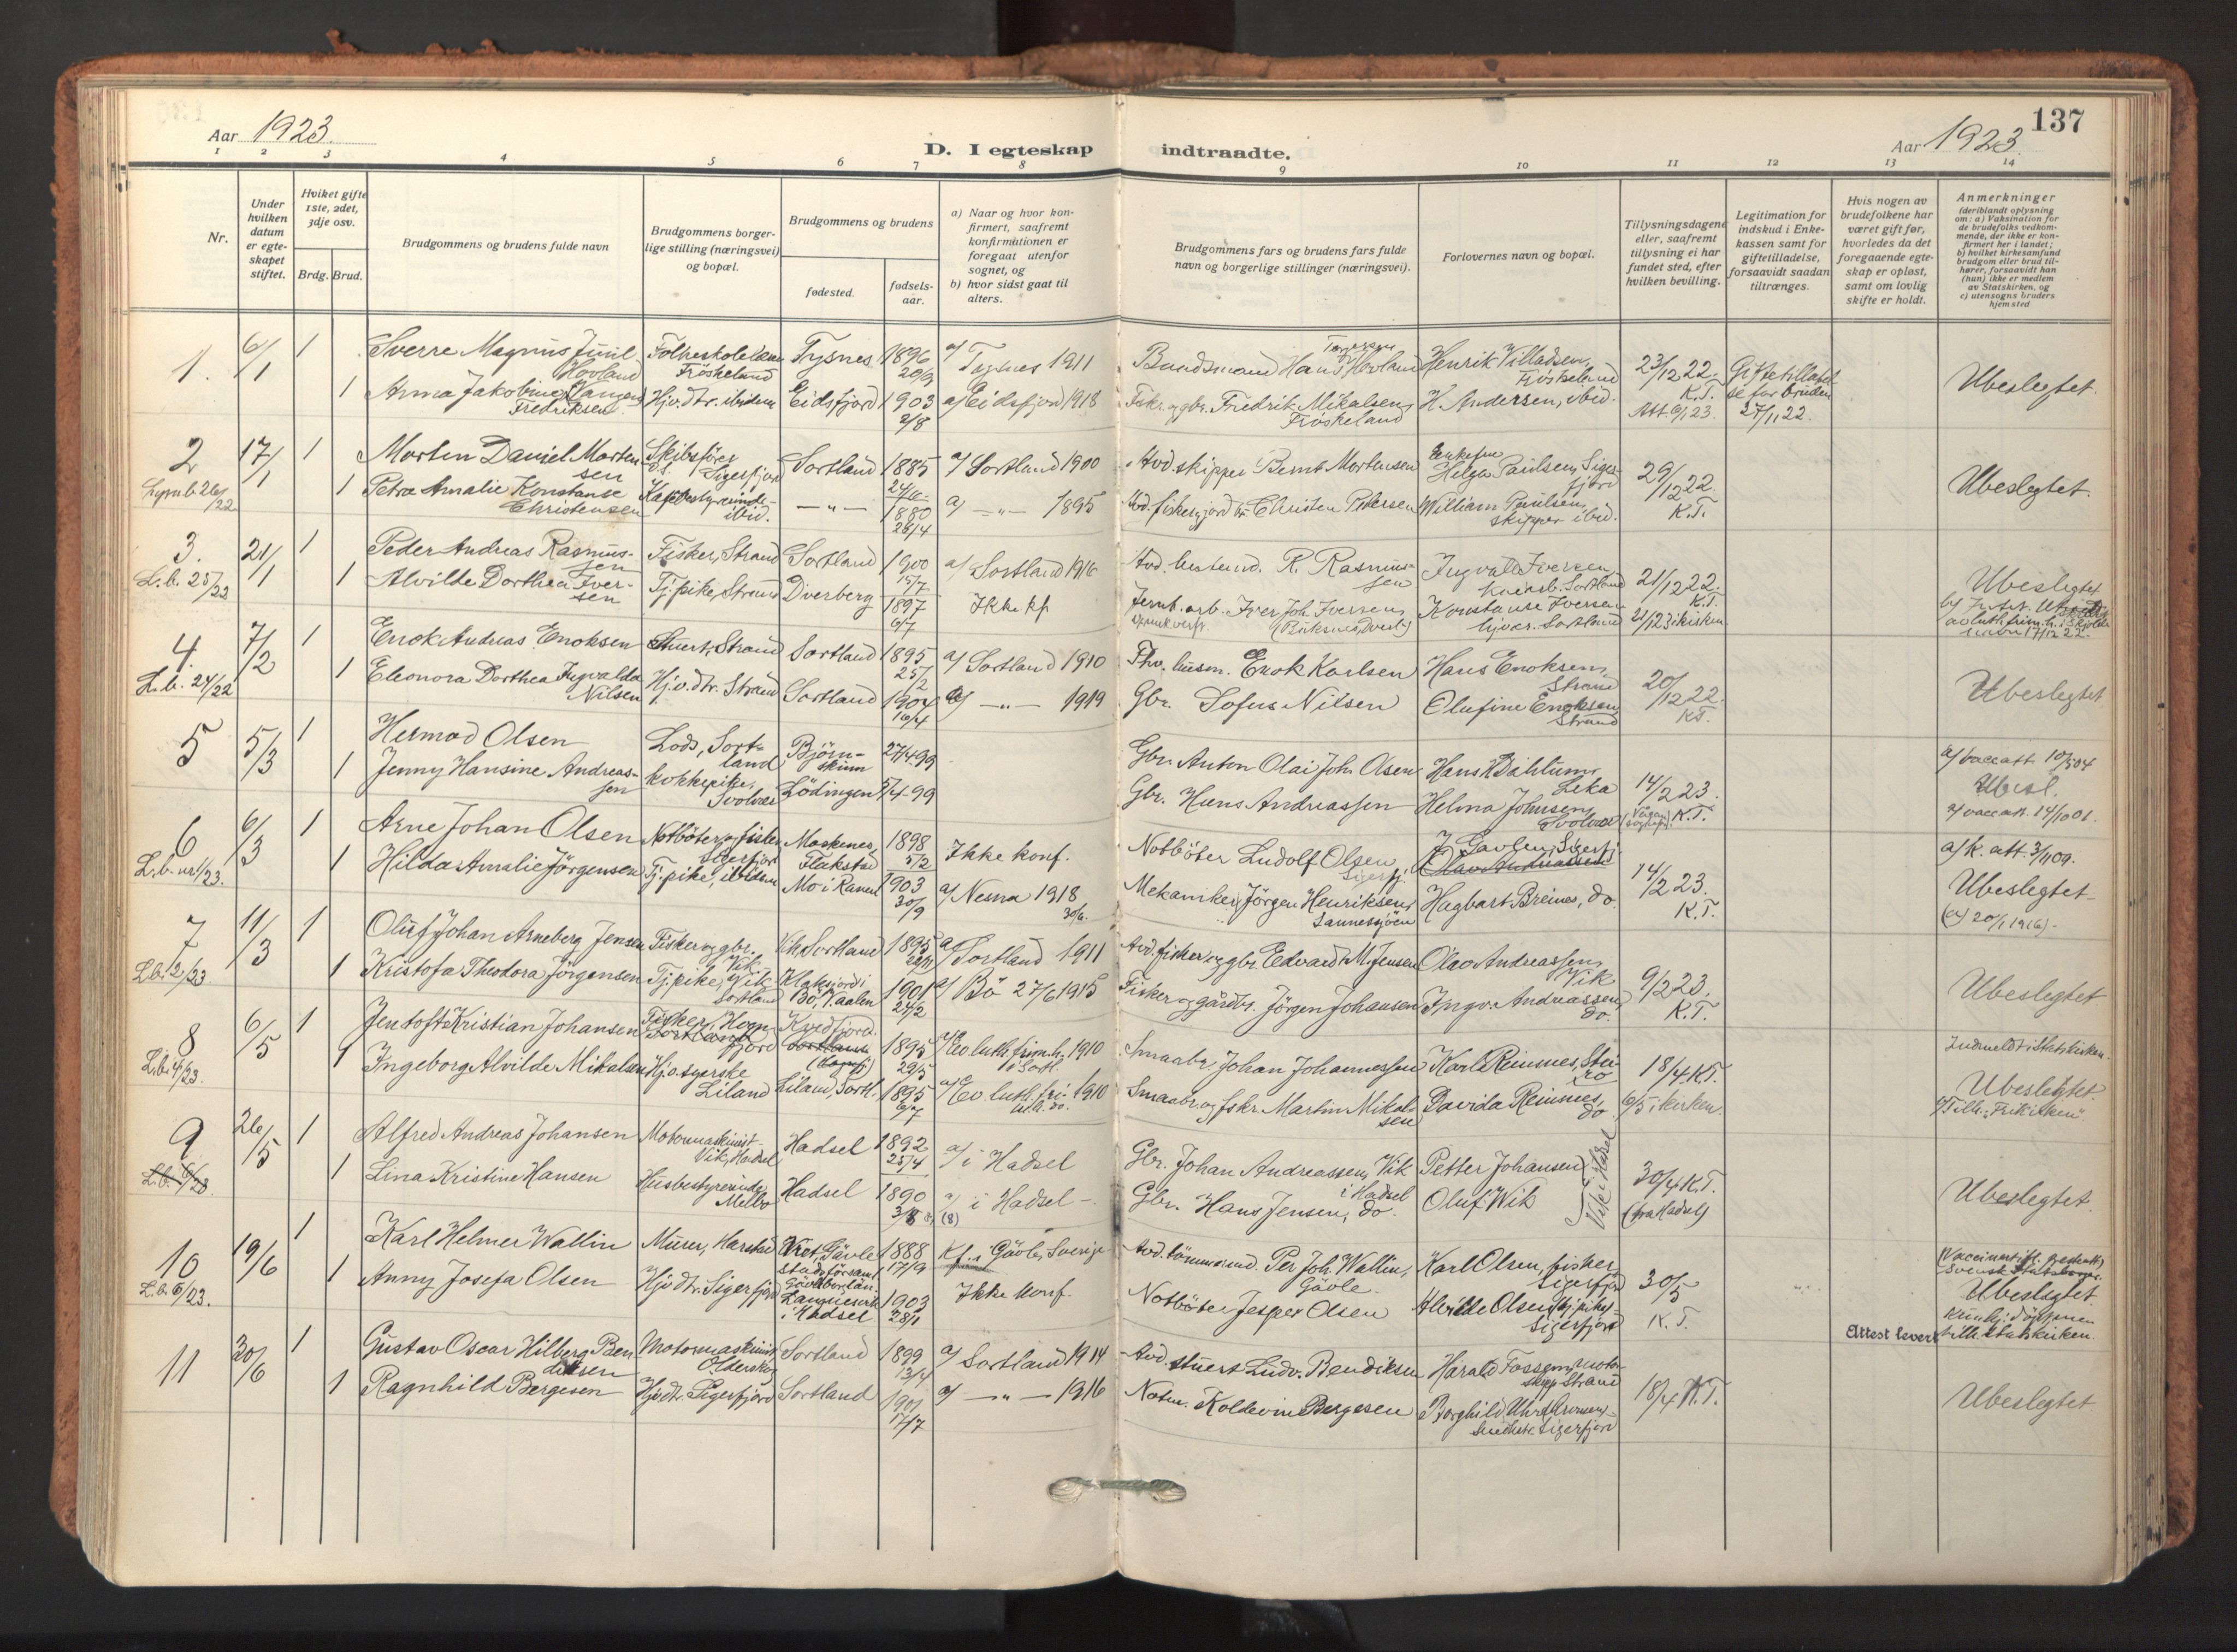 137
Aar 1923.
D. I egteskap indtraadte.
Aar 1923.
1 2 3 4 5 6 7 8 9 10 11 12 13 14
Nr.
Under hvilken datum er egte-skapet stiftet.
Hviket gifte 1ste, 2det, 3dje osv.
Brdg. Brud.
Brudgommens og brudens fulde navn
Brudgommens borger-lige stilling (næringsvei) og bopæl.
Brudgommens og brudens
fødested.
fødsels-aar.
a) Naar og hvor kon-firmert, saafremt konfirmationen er foregaat utenfor sognet, og
b) hvor sidst gaat til alters.
Brudgommens fars og brudens fars fulde navn og borgerlige stillinger (næringsvei).
Forlovernes navn og bopæl.
Tillysningsdagene eller, saafremt tillysning ei har fundet sted, efter hvilken bevilling.
Legitimation for indskud i Enke-kassen samt for giftetilladelse, forsaavidt saadan tiltrænges.
Hvis nogen av brudefolkene har været gift før, hvorledes da det foregaaende egte-skap er opløst, samt om lovlig skifte er holdt.
Anmerkninger (deriblandt oplysning om: a) Vaksination for de brudefolks vedkom-mende, der ikke er kon-firmert her i landet; b) hvilket kirkesamfund brudgom eller brud til-hører, forsaavidt han (hun) ikke er medlem av Statskirken, og c) utensogns bruders hjemsted
1. 6/1 1 Sverre Magnus Juul Hovland Frøskeland Tysnes 1896 20/9 a/ Tysnes 1911 Hans Torgersen Hovland Henrik Villadsen, Frøskeland 23/12 22. K.T. Giftetilladel
1 Anna Jakobine Fredriksen Hjv. dtr. ibidem Eidsfjord 1903 2/8 a/ Eidsfjord 1918 Fisk. og gbr. Fredrik Mikalsen, Frøskeland H. Andersen, ibid. Att. 6/1 23. se for bruden 27/11 22. Ubeslegtet.
2 17/1 1 Morten Daniel Mortensen Skibsfører Sigerfjord Sortland 1885 a/ Sortland 1900 Avd. skipper Bernt Mortensen Enkefru Helga Paulsen, Sigerfjord 29/12 22. K.T.
1 Petra Amalie Konstanse Christensen ibid. -"- 1880 26/4 a/ -"- 1895 Christen Pedersen William Paulsen, skipper ibid. Ubeslegtet.
3. L.b. 25/22 21/1 1 Peder Andreas Rasmussen Fisker, Strand Sortland 1900 15/7 a/ Sortland 1916 R. Rasmussen Ingvald Iversen, Sortland 21/12 22. K.T.
1 Alvilde Dorthea Iversen Tj. pike, Strand Dverberg 1897 6/7 Ikke kf. Iver Joh. Iversen Konstanse Iversen Hjv. Sortland 21/1 23 i kirken Ubeslegtet.
4. L.b. 24/22 7/2 1 Enok Andreas Enoksen Stuert, Strand Sortland 1895 25/2 a/ Sortland 1910 Fhv. husm. Enok Karlsen Hans Enoksen, Strand 20/12 22. K.T.
1 Eleonora Dorthea Ingvalda Nilsen Hjv. dtr. Strand Sortland 1904 16/4 a/ -"- 1919 Gbr. Sofus Nilsen Olufine Enoksen, Strand Ubeslegtet
5 5/3 1 Hermod Olsen Lods, Sortland Bjørnskinn 27/4-99 Gbr. Anton Olai Joh. Olsen Hans Dahlum, Leka 14/2 23. K.T. a/ vacc. att. 10/5 04
1 Jenny Hansine Andreassen kokkepike, Svolvær Lødingen 5/4-99 Gbr. Hans Andreassen Helma Johnsen, Svolvær Ubesl. a/ vacc. att. 14/10 01.
6 L.b. nr 1/23. 6/3 1 Arne Johan Olsen Notbøter og fisker Sigerfjord Moskenes, Flakstad 1898 5/2 Ikke konf. Notbøter Ludolf Olsen, Sigerfj. 14/2 23. K.T. a/ k. att. 3/11 09.
1 Hilda Amalie Jørgensen Tj. pike, ibidem Mo i Ranen 1903 30/9 a/ Nesna 1918 30/6. Mekaniker Jørgen Henriksen, Sannessjøen Hagbart Breines, do. Ubeslegtet (a/ 20/1 1916)
7 L.b. 2/23. 11/3 1 Oluf Johan Arneberg Jensen Fisker og gbr. Vik Vik, Sortland 1895 a/ Sortland 1911 Avd. fisker og gbr. Edvard M. Jensen Olav Andreassen, Vik 9/2 23. K.T.
1 Kristofa Theodora Jørgensen Tj. pike, Vik Sortland Bø, V.aalen 1901 24/2 a/ Bø 27/6 1915 Fisker og gårdbr. Jørgen Johansen Ingv. Andreassen, do. Ubeslegtet
8 L.b. 4/23. 6/5 1 Jentoft Kristian Johansen Fisker, Kvedfjord 1895 29/5 a/ Ev. luth. frim.h. 1910 i Sortl. Smaabr. Johan Johannessen Karl Reinnes, 18/4. K.T. Indmeldt i Statskirken.
1 Ingeborg Alvilde Mikalsen Hj. syerske Liland Liland, Sortl. 1895 6/7 a/ Ev. luth. fri- 1910 Smaabr. og fskr. Martin Mikalsen Davida Reinnes, do. 6/5 i kirken. Ubeslegtet.
9 L.b. 6/23 26/5 1 Alfred Andreas Johansen Motormaskinist Vik, Hadsel Hadsel 1892 25/4 a/ i Hadsel Gbr. Johan Andreassen, Vik i Hadsel Petter Johansen Vik i Hadsel 30/4 K.T.
1 Lina Kristine Hansen Husbestyrerinde, Melbo Hadsel 1890 a/ i Hadsel - Gbr. Hans Jensen, do. Oluf Wik (fra Hadsel) Ubeslegtet.
10 L.b. 6/23. 19/6 1 Karl Helmer Wallin Murer, Harstad Gävle stadsförsaml. Gävleborgs län. 1888 17/9 Kf. i Gävle, Sverige Avd. tømmermd. Per Joh. Wallin, Gävle. Karl Olsen, fisker Sigerfjord 30/5 K.T. Svensk Statsborger.
1 Anny Josefa Olsen Hjv. dtr. Sigerfjord i Hadsel 1903 28/1 Ikke konf. Notbøter Jesper Olsen Alvilde Olsen, Sigerfjord Ubeslegtet
Attest levert tilh. Statskirken.
11 20/6 1 Gustav Oscar Hilberg Bendiksen Motormaskinist Olderskog Sortland 1899 13/4 a/ Sortland 1914 Avd. stuert Ludv. Bendiksen Harald Fossem, Strand 18/4 K.T.
1 Ragnhild Bergesen Hjv. dtr. Sigerfjord Sortland 1901 17/7 a/ -"- 1916 Notm. Koldevin Bergesen Borghild Sigerfjord Ubeslegtet